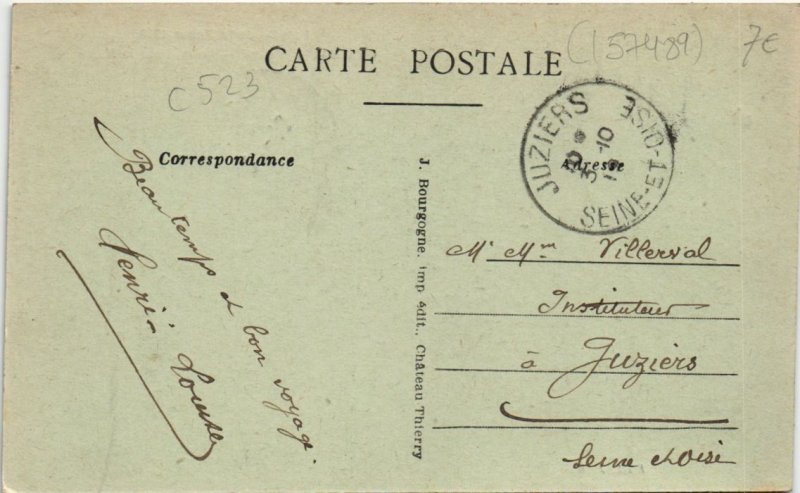 (157489)
7€
C523
CARTE POSTALE
Correspondance
Beau temps et bon voyage.
Henri Louise
J. Bourgogne. imp. édit., Château Thierry
JUZIERS
SEINE-ET-OISE
Adresse
Mr Mme Villerval
Instituteur
à Juziers
Seine et Oise